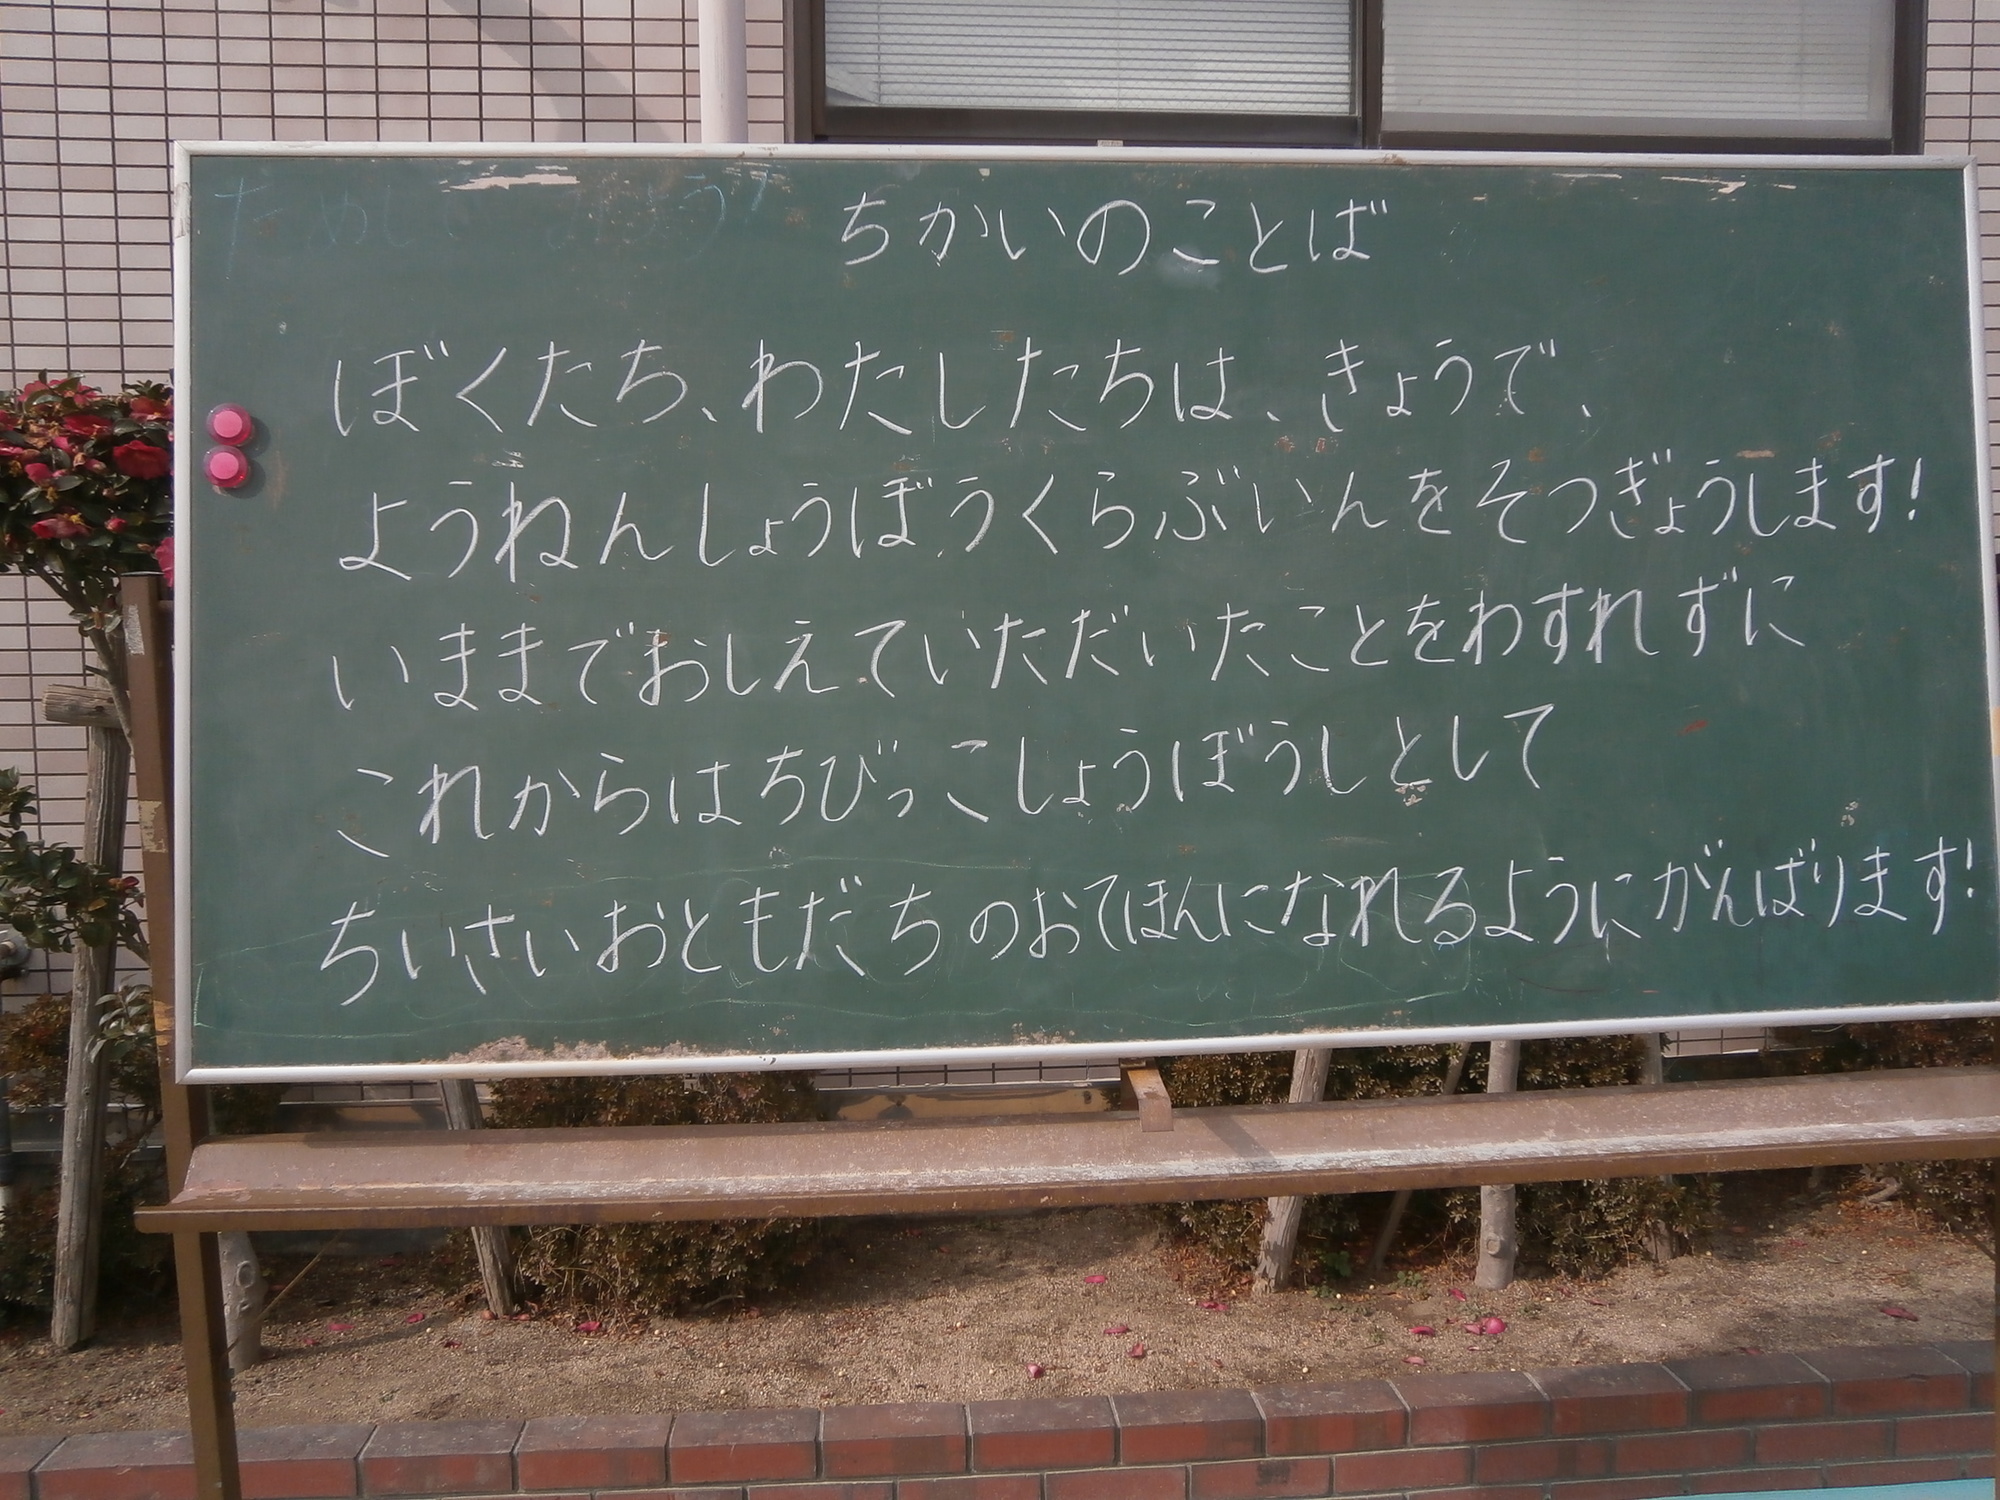 ちかいのことば
ぼくたち、わたしたちは、きょうで、
ようねんしょうぼうくらぶいんをそつぎょうします!
いままでおしえていただいたことをわすれずに
これからはちびっこしょうぼうしとして
ちいさいおともだちのおてほんになれるようにがんばります!